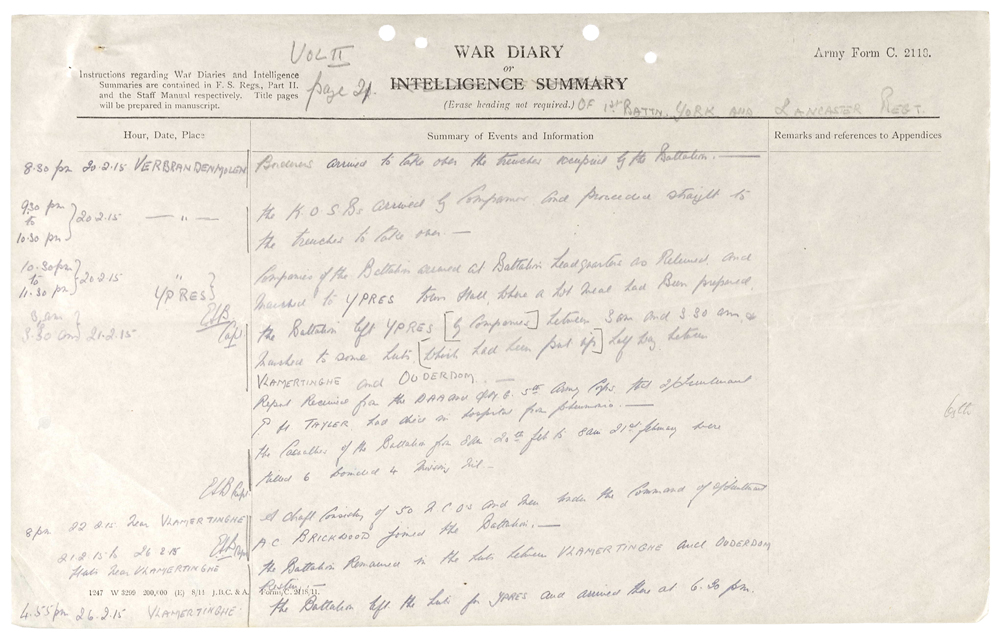 VOL II
page 21.
WAR DIARY
or
INTELLIGENCE SUMMARY
(Erase heading not required.) OF 1st BATTN. YORK AND LANCASTER REGT.
Army Form C. 2118.
Instructions regarding War Diaries and Intelligence
Summaries are contained in F. S. Regs., Part II.
and the Staff Manual respectively. Title pages
will be prepared in manuscript.
Hour, Date, Place
Summary of Events and Information
Remarks and references to Appendices
8.30 pm 20.2.15 VERBRANDENMOLEN
Borderers arrived to take over the trenches occupied by the Battalion.
9.30 pm to 10.30 pm } 20.2.15 — " —
the K.O.S.Bs arrived by Companies and proceeded straight to
the trenches to take over.—
10.30 pm to 11.30 pm } 20.2.15 "
YPRES }
Companies of the Battalion arrived at Battalion headquarters as Relieved, and
marched to YPRES town Hall, where a hot meal had been prepared.
3 am
3.30 am } 21.2.15
ESB Capt
the Battalion left YPRES [by Companies] between 3 am and 3.30 am &
marched to some huts [which had been put up] half way between
VLAMERTINGHE and OUDERDOM.—
Report Received from the DAAG 5th Army Corps that 2/Lieutenant
H. TAYLER had died in hospital from pneumonia.—
the Casualties of the Battalion from 8 am 20th feb to 8 am 21st february were
killed 6 wounded 4 missing nil.—
ESB Capt
8 pm 22.2.15 near VLAMERTINGHE
A draft consisting of 50 NCOs and men under the Command of 2/Lieutenant
A C BRICKWOOD joined the Battalion.—
ESB Capt
21.2.15 to 26.2.15
Huts near VLAMERTINGHE
the Battalion Remained in the huts between VLAMERTINGHE and OUDERDOM
Resting.—
1247 W 3299 200,000 (E) 8/14 J.B.C. & A. Forms/C. 2118/11.
4.55 pm 26.2.15 VLAMERTINGHE
the Battalion left the huts for YPRES and arrived there at 6.30 pm.